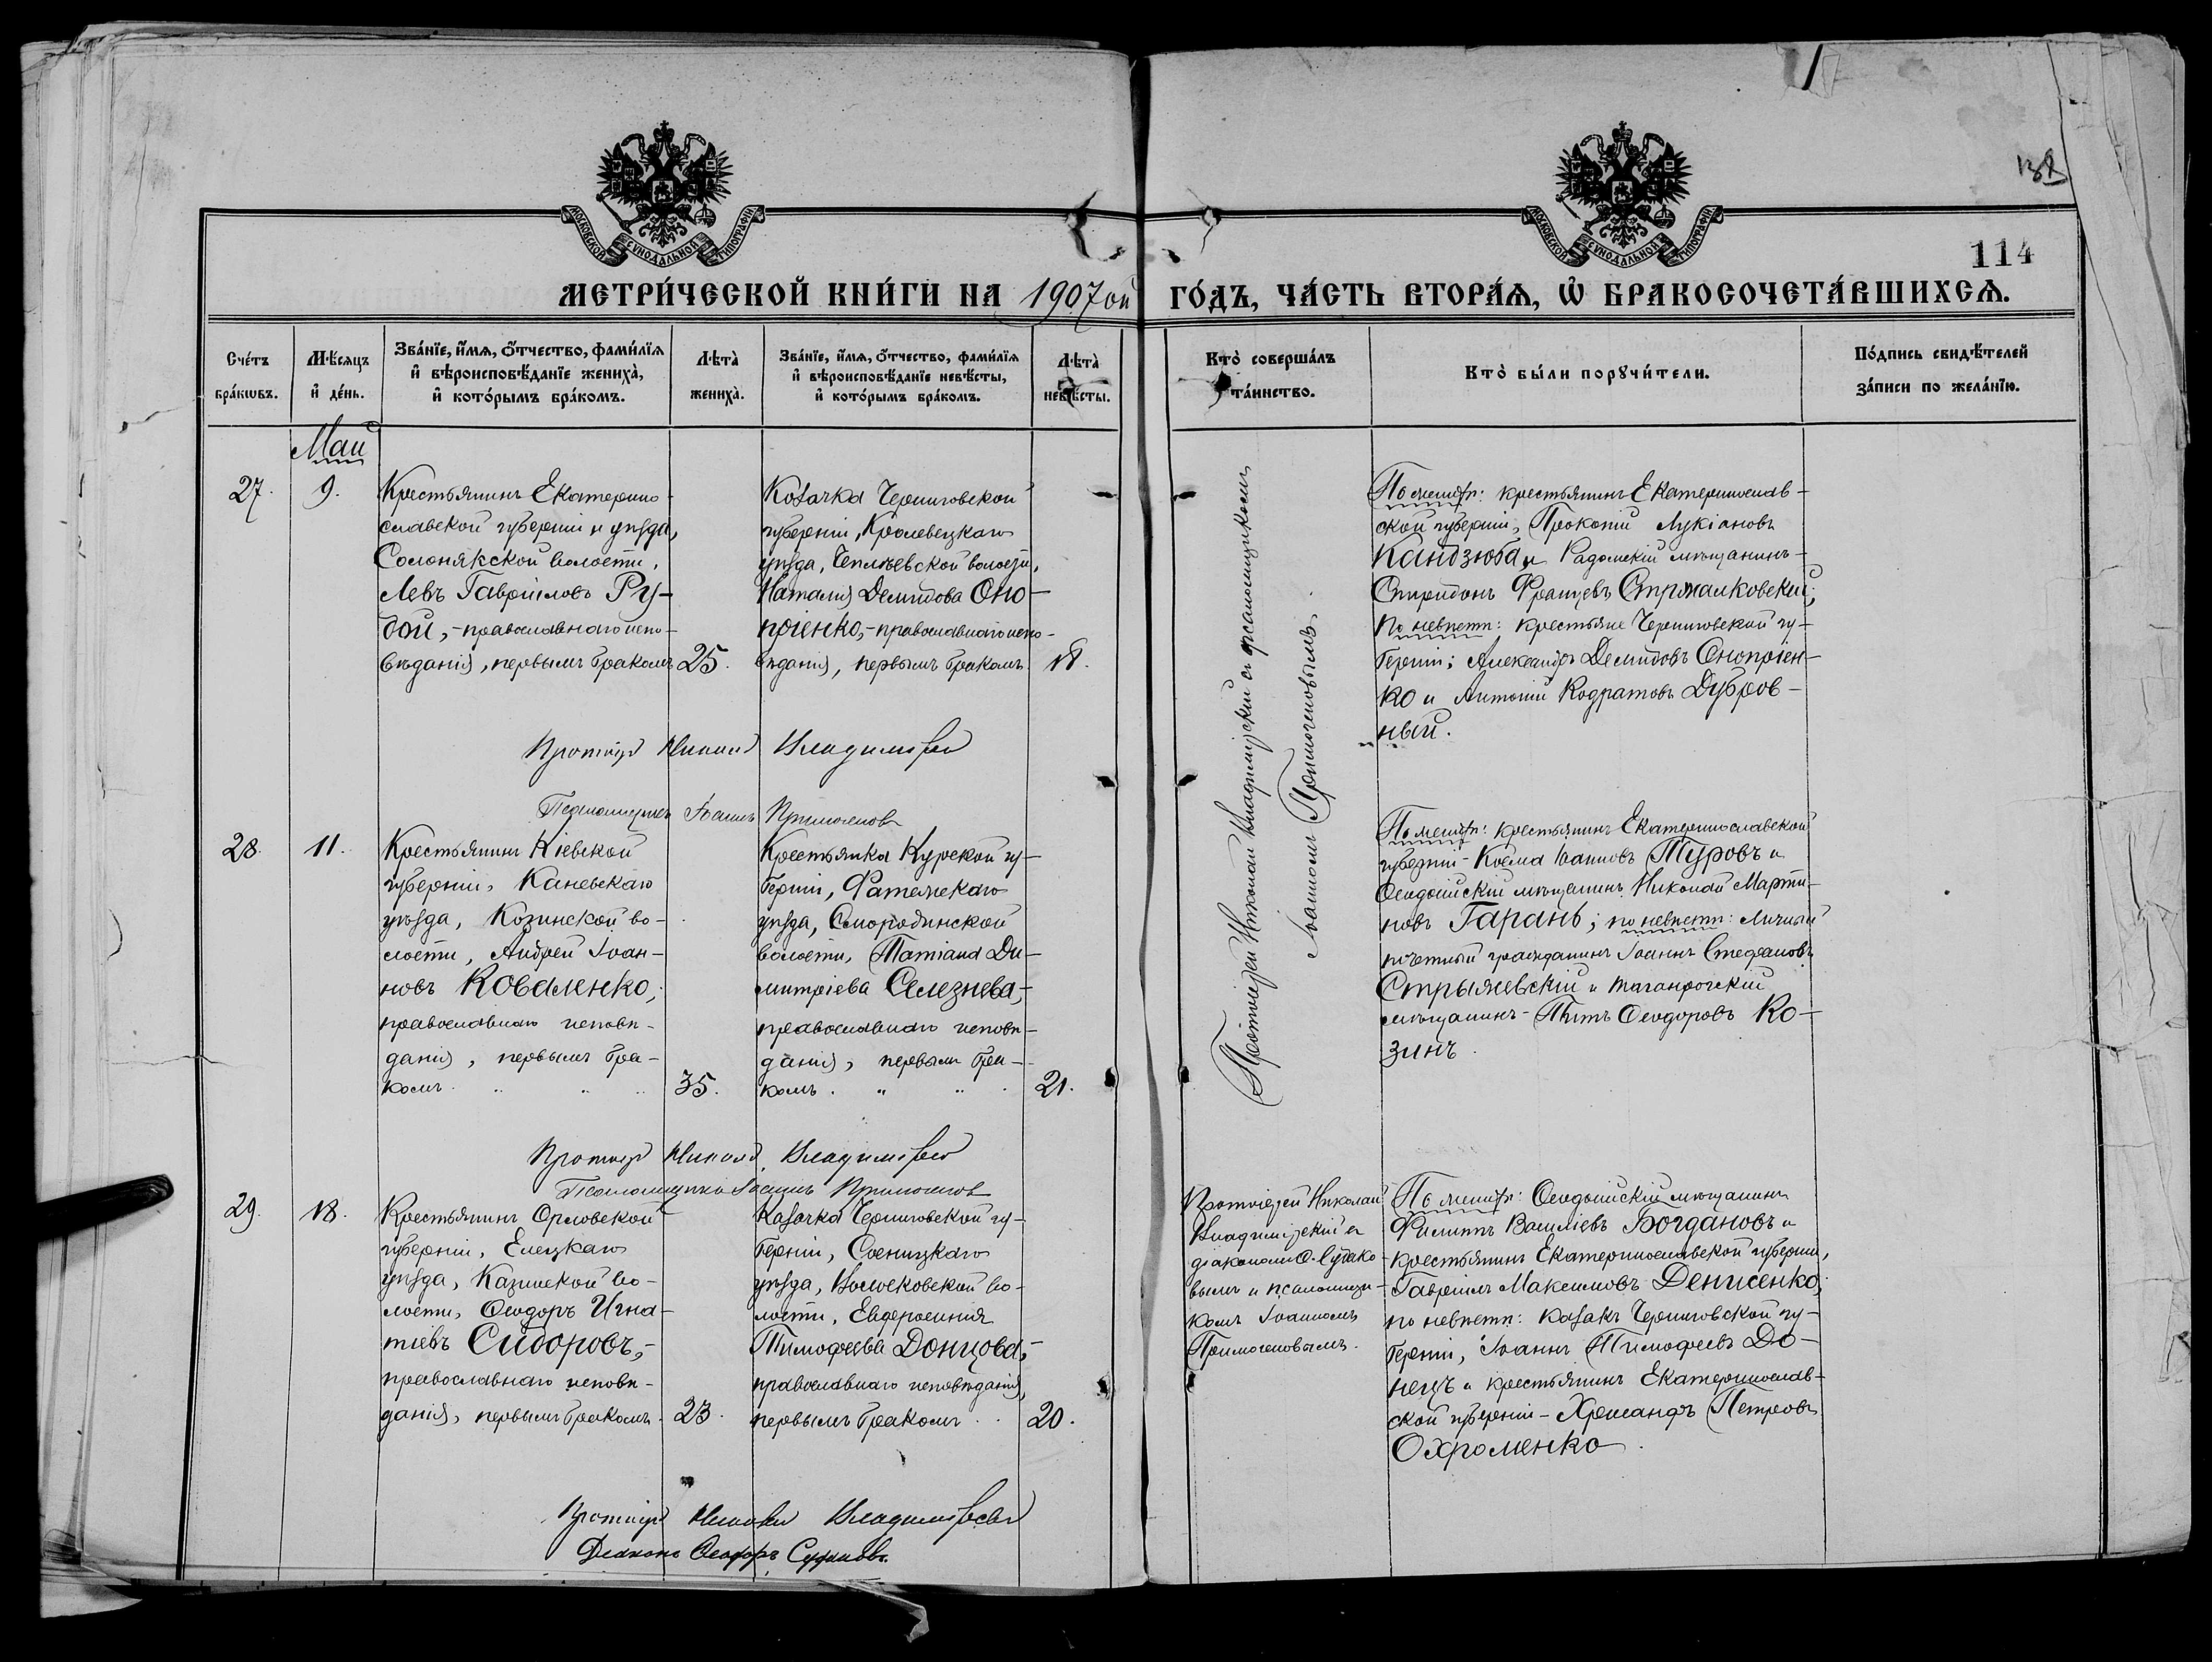 132
114
МОСКОВСКОЙ СѴНОДАЛЬНОЙ ТИПОГРАФІИ
МОСКОВСКОЙ СѴНОДАЛЬНОЙ ТИПОГРАФІИ
МЕТРИ́ЧЕСКОЙ КНИ́ГИ НА 1907ой ГО́ДЪ, ЧА́СТЬ ВТОРА́Ѧ, Ѡ҆ БРАКОСОЧЕТА́ВШИХСѦ.
Сче́тъ
бра́кѡвъ.
Мѣ́сѧцъ
и҆ де́нь.
Зва́нїе, и҆́мѧ, ѻ҆́тчество, фами́лїѧ
и҆ вѣроисповѣ́данїе жениха̀,
и҆ кото́рымъ бра́комъ.
Лѣта̀
жениха̀.
Зва́нїе, и҆́мѧ, ѻ҆́тчество, фами́лїѧ
и҆ вѣроисповѣ́данїе невѣ́сты,
и҆ кото́рымъ бра́комъ.
Лѣта̀
невѣ́сты.
Кто̀ соверша́лъ
та́инство.
Кто̀ бы́ли порꙋчи́тели.
По́дпись свидѣ́телей
за́писи по жела́нїю.
Май
27.
9.
Крестьянинъ Екатерино-
славской губерніи и уѣзда,
Солонякской волости,
Левъ Гавріиловъ Ру-
дой,- православнаго испо-
вѣданія, первымъ бракомъ
25.
Козачка Черниговской
губерніи, Кролевецкаго
уѣзда, волости,
Наталія Демидова Оно-
пріенко,- православнаго испо-
вѣданія, первымъ бракомъ.
18.
Протоіерей Николай Владимірскій съ псаломщикомъ
Іоанномъ Примогеновымъ.
По женихѣ: крестьянинъ Екатеринослав-
ской губерніи, Прокопій Лукіановъ
Кандзюба и Радомскій мѣщанинъ-
Спиридонъ Францевъ Стржалковскій;
по невѣстѣ: крестьяне Черниговской гу-
берніи; Александръ Демидовъ Онопріен-
ко и Антоній Кодратовъ Дубров-
ный.
Протоіерей Николай Владимірскій
Псаломщикъ Іоаннъ Примогеновъ
28.
11.
Крестьянинъ Кіевской
губерніи, Каневскаго
уѣзда, Козинской во-
лости, Андрей Іоан-
новъ Коваленко,
православнаго исповѣ-
данія, первымъ бра-
комъ.
35.
Крестьянка Курской гу-
берніи, Фатежскаго
уѣзда, Смородинской
волости, Татіана Ди-
митріева Селезнева,-
православнаго исповѣ-
данія, первымъ бра-
комъ.
21.
По женихѣ: крестьянинъ Екатеринославской
губерніи- Косма Іоанновъ Туровъ и
Ѳеодосійскій мѣщанинъ Николай Марти-
новъ Гарань; по невѣстѣ: личный
почетный гражданинъ Іоаннъ Стефановъ
Стрыжевскій и таганрогскій
мѣщанинъ- Титъ Ѳеодоровъ Ко-
зинъ.
Протоіерей Николай Владимірскій
Псаломщикъ Іоаннъ Примогеновъ
29.
18.
Крестьянинъ Орловской
губерніи, Елецкаго
уѣзда, Казинской во-
лости, Ѳеодоръ Игна-
тіевъ Сидоровъ,-
православнаго исповѣ-
данія, первымъ бракомъ.
23.
Казачка Черниговской гу-
берніи, Сосницкаго
уѣзда, Волосковской во-
лости,
Тимофеева Донцова,-
православнаго исповѣданія,
первымъ бракомъ
20.
Протоіерей Николай
Владимірскій съ
діакономъ Ѳ. Судако-
вымъ и псаломщи-
комъ Іоанномъ
Примогеновымъ.
По женихѣ: Ѳеодосійскій мѣщанинъ
Филиппъ Василіевъ Богдановъ и
крестьянинъ Екатеринославской губерніи,
Гавріилъ Максимовъ Денисенко;
по невѣстѣ: казакъ Черниговской гу-
берніи, Іоаннъ Тимофеевъ До-
нецъ и крестьянинъ Екатеринослав-
ской губерніи- Хрисанфъ Петровъ
Охроменко.
Протоіерей Николай Владимірскій
Діаконъ Ѳеодоръ Судаковъ